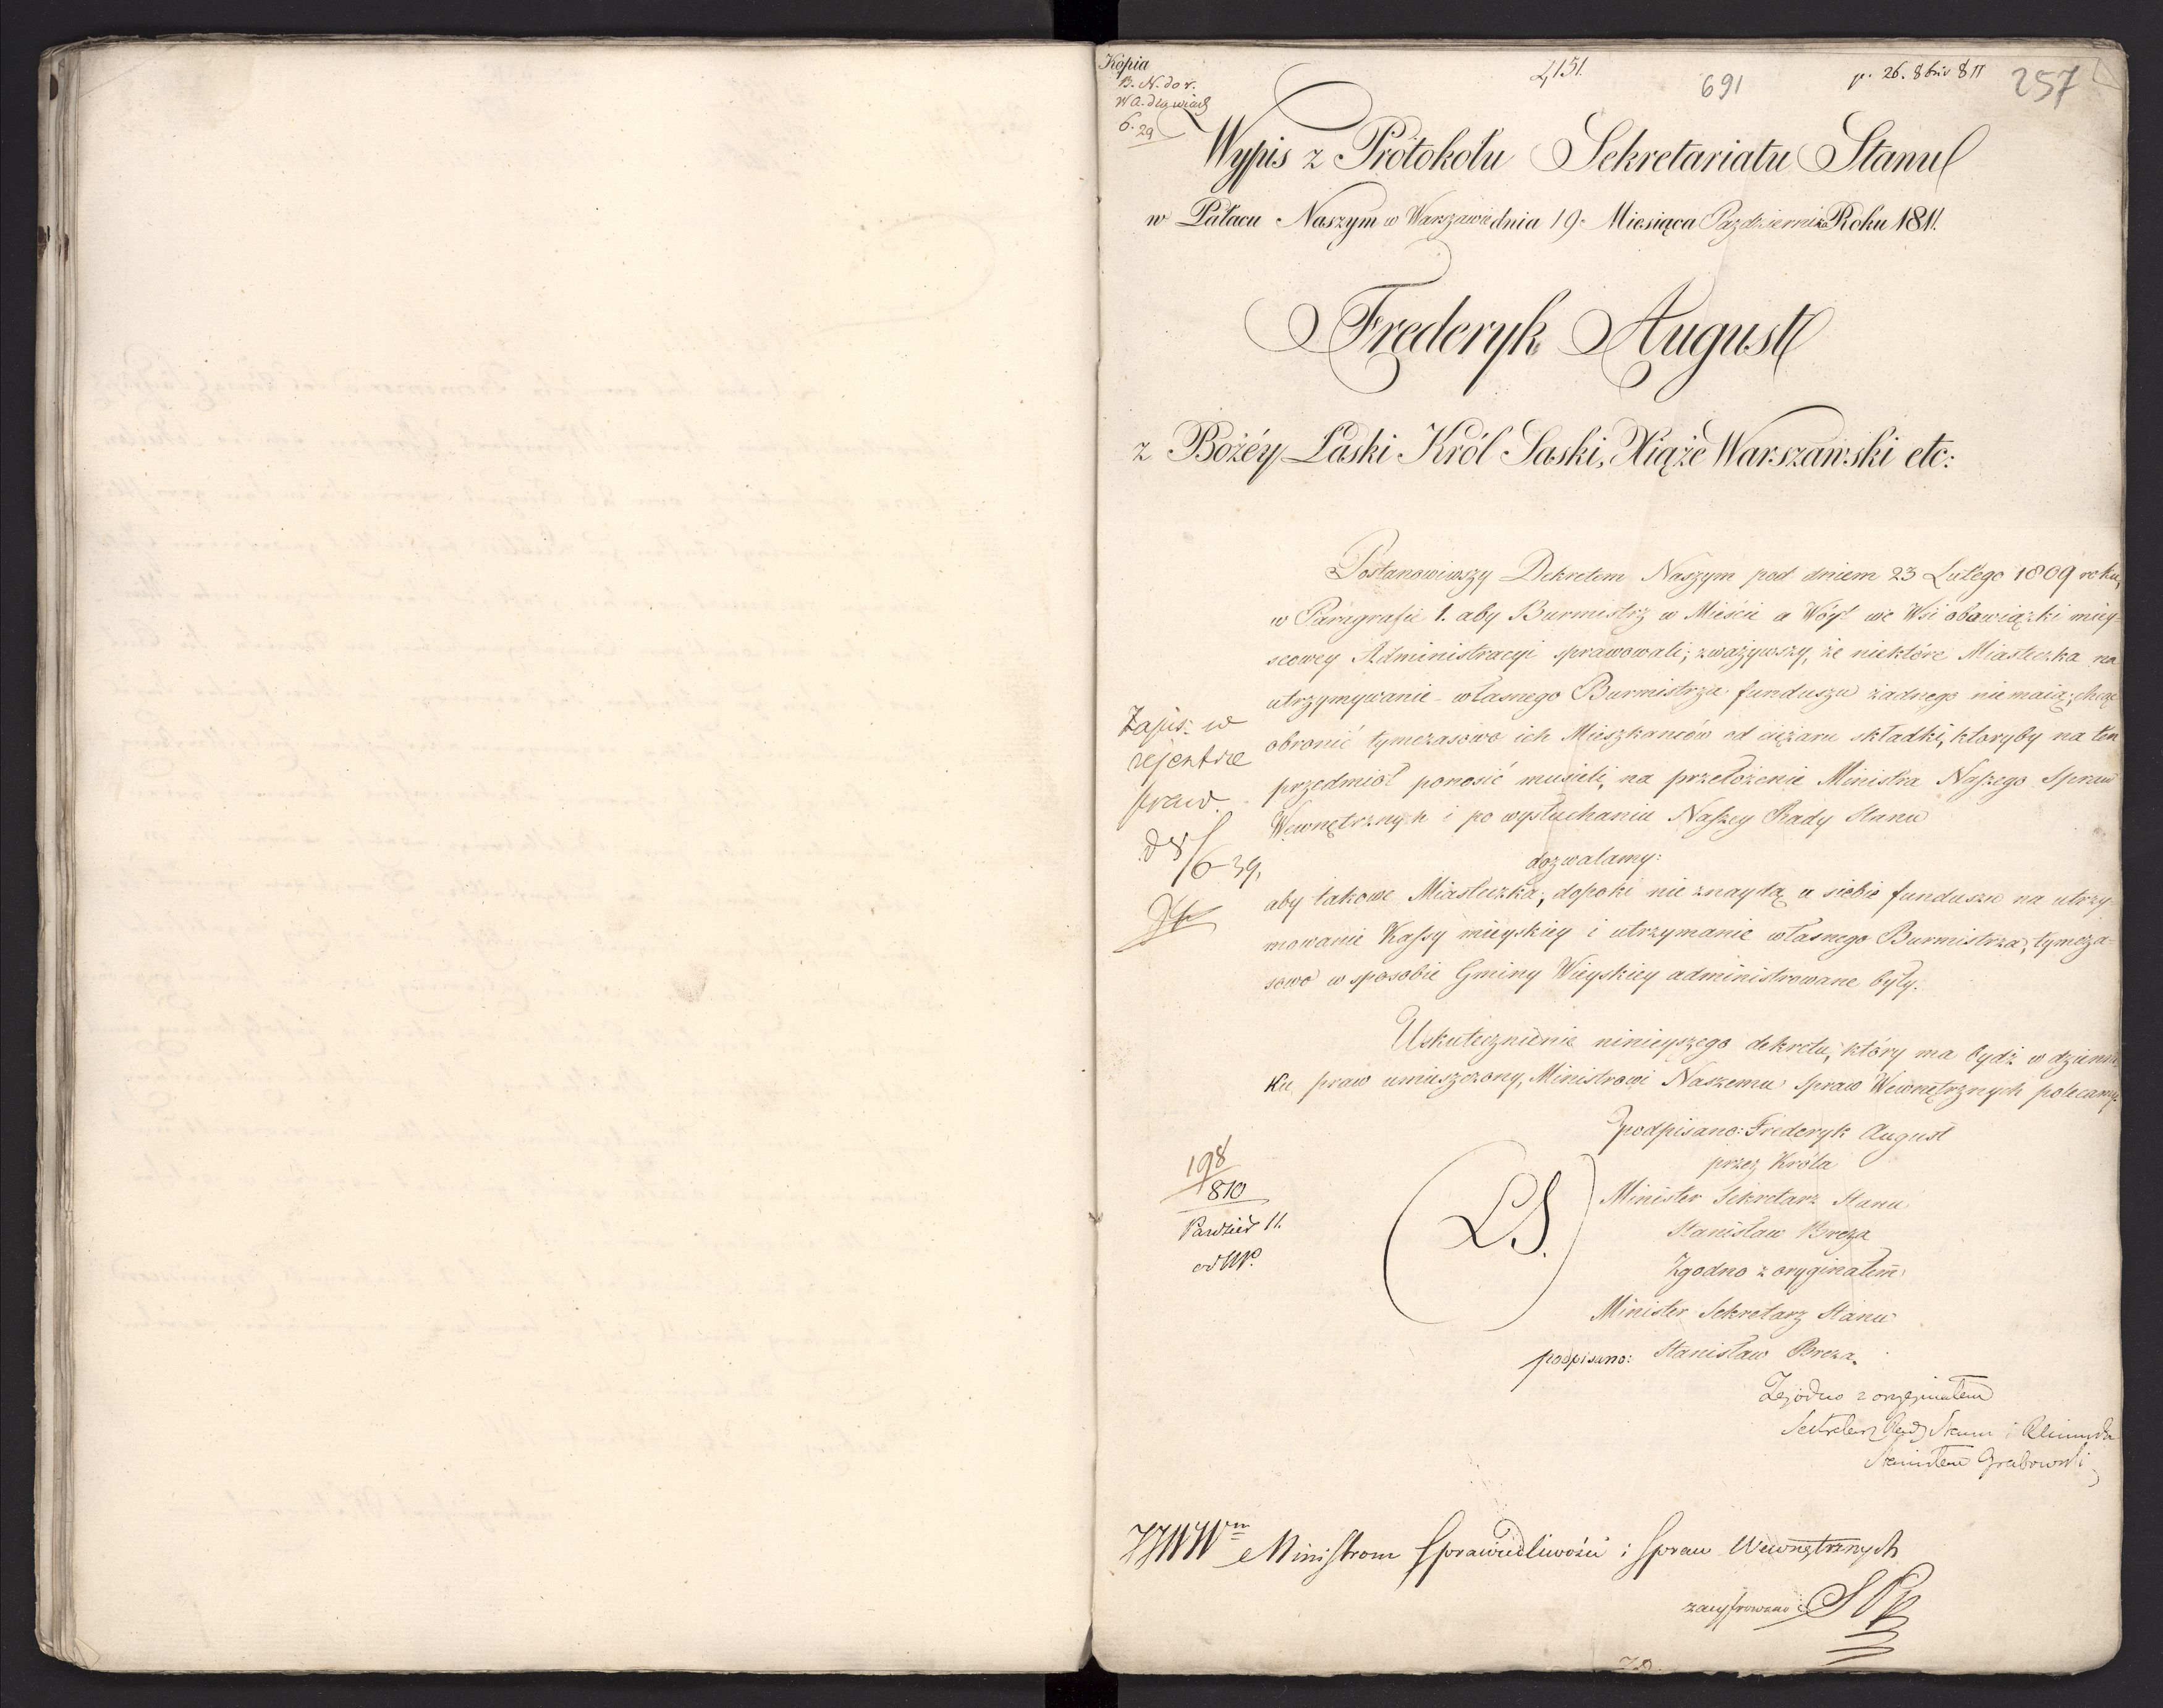 Kopia
4151.
691
p. 26. 8bris 811
257
6. 29
Wypis z Protokołu Sekretariatu Stanu
w Pałacu Naszym w Warszawie dnia 19. Miesiąca Październik Roku 1811.
Frederyk August
z Bożéy Łaski Król Saski, Xiąże Warszawski etc:
Postanowiwszy Dekretem Naszym pod dniem 23 Lutego 1809 roku,
w Paragrafie 1. aby Burmistrz w Mieście a Wóyt we Wsi obowiązki miey-
scowey Administracyi sprawowali; zważywszy, że niektóre Miasteczka na
utrzymywanie własnego Burmistrza funduszu żadnego nie maią; chcąc
obronić tymczasowo ich Mieszkanców od ciężaru składki, ktoryby na ten
przedmiot ponosić musieli, na przełożenie Ministra Naszego Spraw
Wewnętrznych i po wysłuchaniu Naszey Rady Stanu
dozwalamy:
aby takowe Miasteczka, dopoki nie znaydą u siebie funduszu na utrzy-
mowanie Kassy mieyskiey i utrzymanie własnego Burmistrza, tymcza-
sowo w sposobie Gminy Wieyskiey administrowane były.
Uskutecznienie ninieyszego dekretu, który ma bydź w dzienni-
ku praw umieszczony, Ministrowi Naszemu Spraw Wewnętrznych polecamy.
Zapis: w
rejentrze
praw.
d 8/6 39,
198
810
Paździer 11.
podpisano: Frederyk August
przez Króla
Minister Sekretarz Stanu
Stanisław Breza
Zgodno z oryginałem
Minister Sekretarz Stanu
podpisano: Stanisław Breza.
(LS.)
Zgodno z oryginałem
Sekretarz Rady Stanu i Ministrów
Stanisław Grabowski
JJWWm Ministrom Sprawiedliwości i Spraw Wewnętrznych
zacyfrowano: SPk